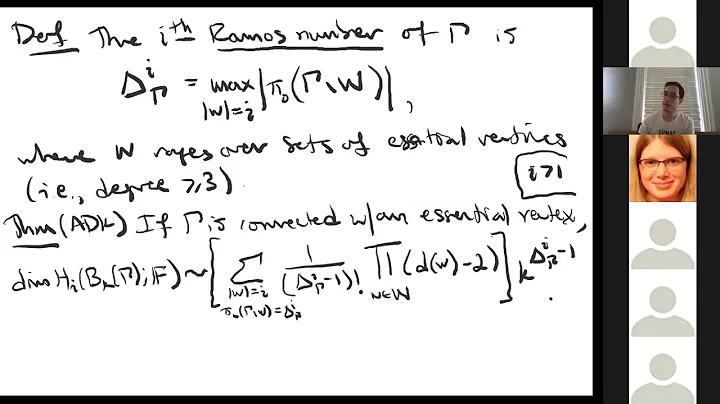 Def The i^th Ramos number of Γ is
Δ^i_Γ = max_{|W|=i} |π_0(Γ∖W)|,
where W ranges over sets of essential vertices
(i.e., degree ≥3).
i>1
Thm (ADK) If Γ is connected w/ an essential vertex,
dim H_i(B_k(Γ);F) ~ [ Σ_{|W|=i, π_0(Γ∖W)=Δ^i_Γ} 1/(Δ^i_Γ-1)! ∏_{w∈W} (d(w)-2) ] k^{Δ^i_Γ-1}.